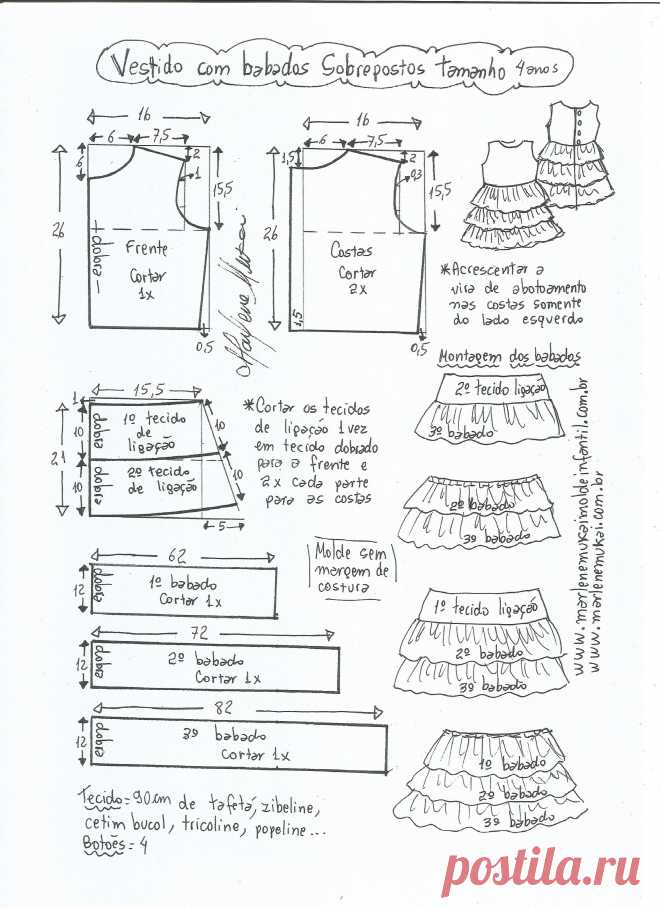 Vestido com babados Sobrepostos tamanho 4 anos
16
6
7,5
2
6
1
15,5
26
dobra
Frente
Cortar
1x
0,5
Marlene Mukai
16
6
7,5
1,5
2
0,3
15,5
26
Costas
Cortar
2x
1,5
0,5
*Acrescentar a
vira de abotoamento
nas costas somente
do lado esquerdo
15,5
1
10
21
10
dobra
1º tecido
de
ligação
10
dobra
2º tecido
de ligação
10
5
*Cortar os tecidos
de ligação 1 vez
em tecido dobrado
para a frente e
2x cada parte
para as costas
Montagem dos babados
2º tecido ligação
3º babado
2º babado
3º babado
1º tecido ligação
2º babado
3º babado
1º babado
2º babado
3º babado
www.marlenemukaimoldeinfantil.com.br
www.marlenemukai.com.br
Molde sem
margem de
costura
62
12
dobra
1º babado
Cortar 1x
72
12
dobra
2º babado
Cortar 1x
82
12
dobra
3º babado
Cortar 1x
Tecido=90cm de tafetá, zibeline,
cetim bucol, tricoline, popeline...
Botões=4
postila.ru